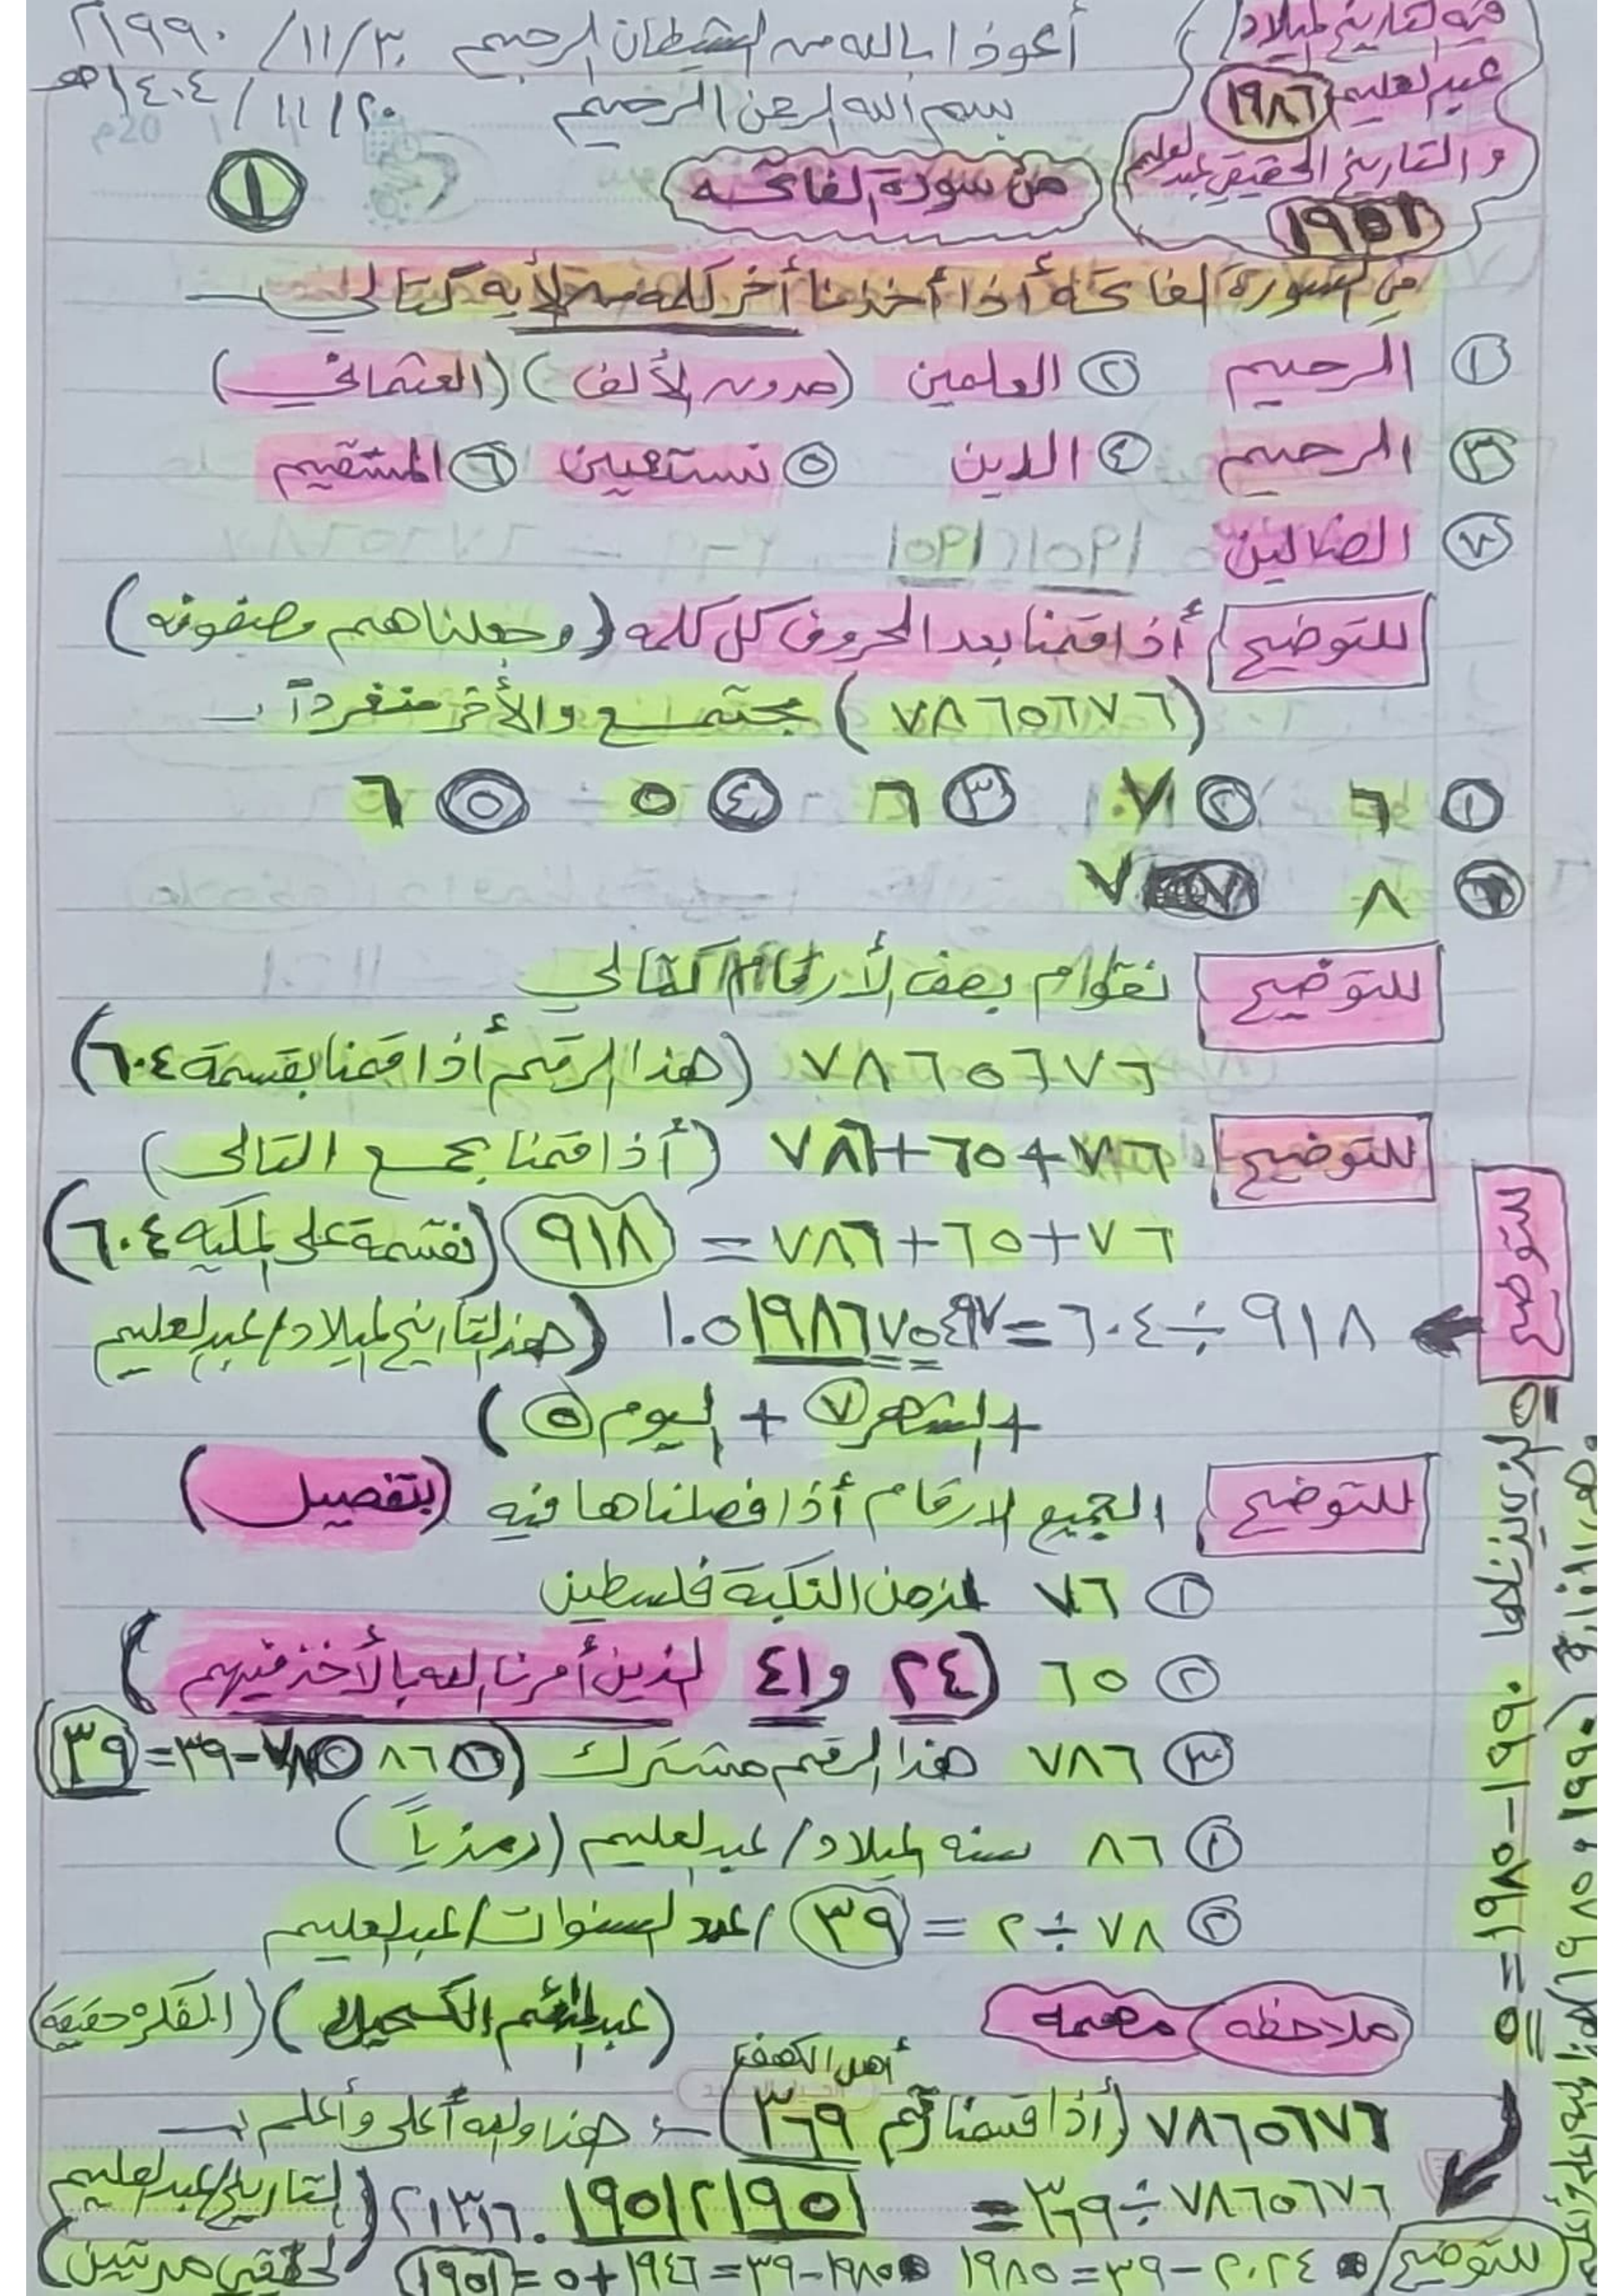 أعوذ بالله من الشيطان الرجيم ٣٠/١١/١٩٩٠م
بسم الله الرحمن الرحيم ٢٠/١١/١٤٠٤هـ
فيه التاريخ لميلاد
عبدالعليم ١٩٨٦
والتاريخ الحقيقي عبدالعليم
١٩٥١
من سورة الفاتحه
١
في السورة الفاتحه أذا أخذنا أخر كلمه من الأيه كتالي
١ الرحيم ٢ العلمين (بدون الألف) (العثماني)
٣ الرحيم ٤ الدين ٥ نستعين ٦ المستقيم
٧ الضالين
للتوضيح أذا قمنا بعد الحروف كل كلمه (وجعلناهم مصفوفه)
(٧٨٦٥٦٧٦) مجتمع والأخر منفرداً
١ ٦ ٢ ٧ ٣ ٦ ٤ ٥ ٥ ٦
٦ ٨ ٧ ٧
للتوضيح نقوام بصف الأرقام كتالي
٧٨٦٥٦٧٦ (هذا الرقم أذا قمنا بقسمة ٦٠٤)
للتوضيح ٧٦+٦٥+٧٨٦ (أذا قمنا بجمع التالي)
٧٦+٦٥+٧٨٦ = ٩١٨ (نقسمة على المكيه ٦٠٤)
للتوضيح
٩١٨÷٦٠٤=١.٥١٩٨٦٧٥٤٩٧ (هذا التأريخ الميلاد/عبدالعليم
+ الشهر ٧ + اليوم ٥)
للتوضيح الجميع الارقام أذا فصلناها فيه (بتفصيل)
١ ٧٦ لزمن النكبة فلسطين
٢ ٦٥ (٢٤ و٤١ لذين أمرنا الله بالأخذ فيهم)
٣ ٧٨٦ هذا الرقم مشترك (١ ٨٦ ٢ ٧٨-٣٩=٣٩)
١ ٨٦ سنه الميلاد/عبدالعليم (رمزياً)
٢ ٧٨÷٢ = ٣٩ /عدد السنوات/عبدالعليم
ملاحظه مهمه (الفكره حقيقة)
أهل الكهف
٧٨٦٥٦٧٦ (أذا قسمنا رقم ٣٦٩) هذا والله أعلى وأعلم
٧٨٦٥٦٧٦÷٣٦٩= ٢١٣١٦.١٩٥١٢١٩٥١ (لتاريخ/عبدالعليم
الحقيقي مرتين)
للتوضيح ٢٠٢٤-٣٩=١٩٨٥ ١٩٨٥-٣٩=١٩٤٦+٥=١٩٥١
١٩٩٠-١٩٨٥=٥